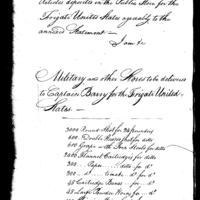 Articles deposited in the Public Store for the
Frigate United States agreeably to the
annexed Statement
I am &c
Military and other Stores to be delivered
to Captain Barry for the Frigate United
States
2000 Round Shot for 24 pounders
600 Double Headed shot for ditto
600 Grape with Iron Stools for ditto
2000 Flannel Cartridges for ditto
300 " Paper " ditto for do
48 Cartridge Boxes for do
48 Large Powder Horns for do